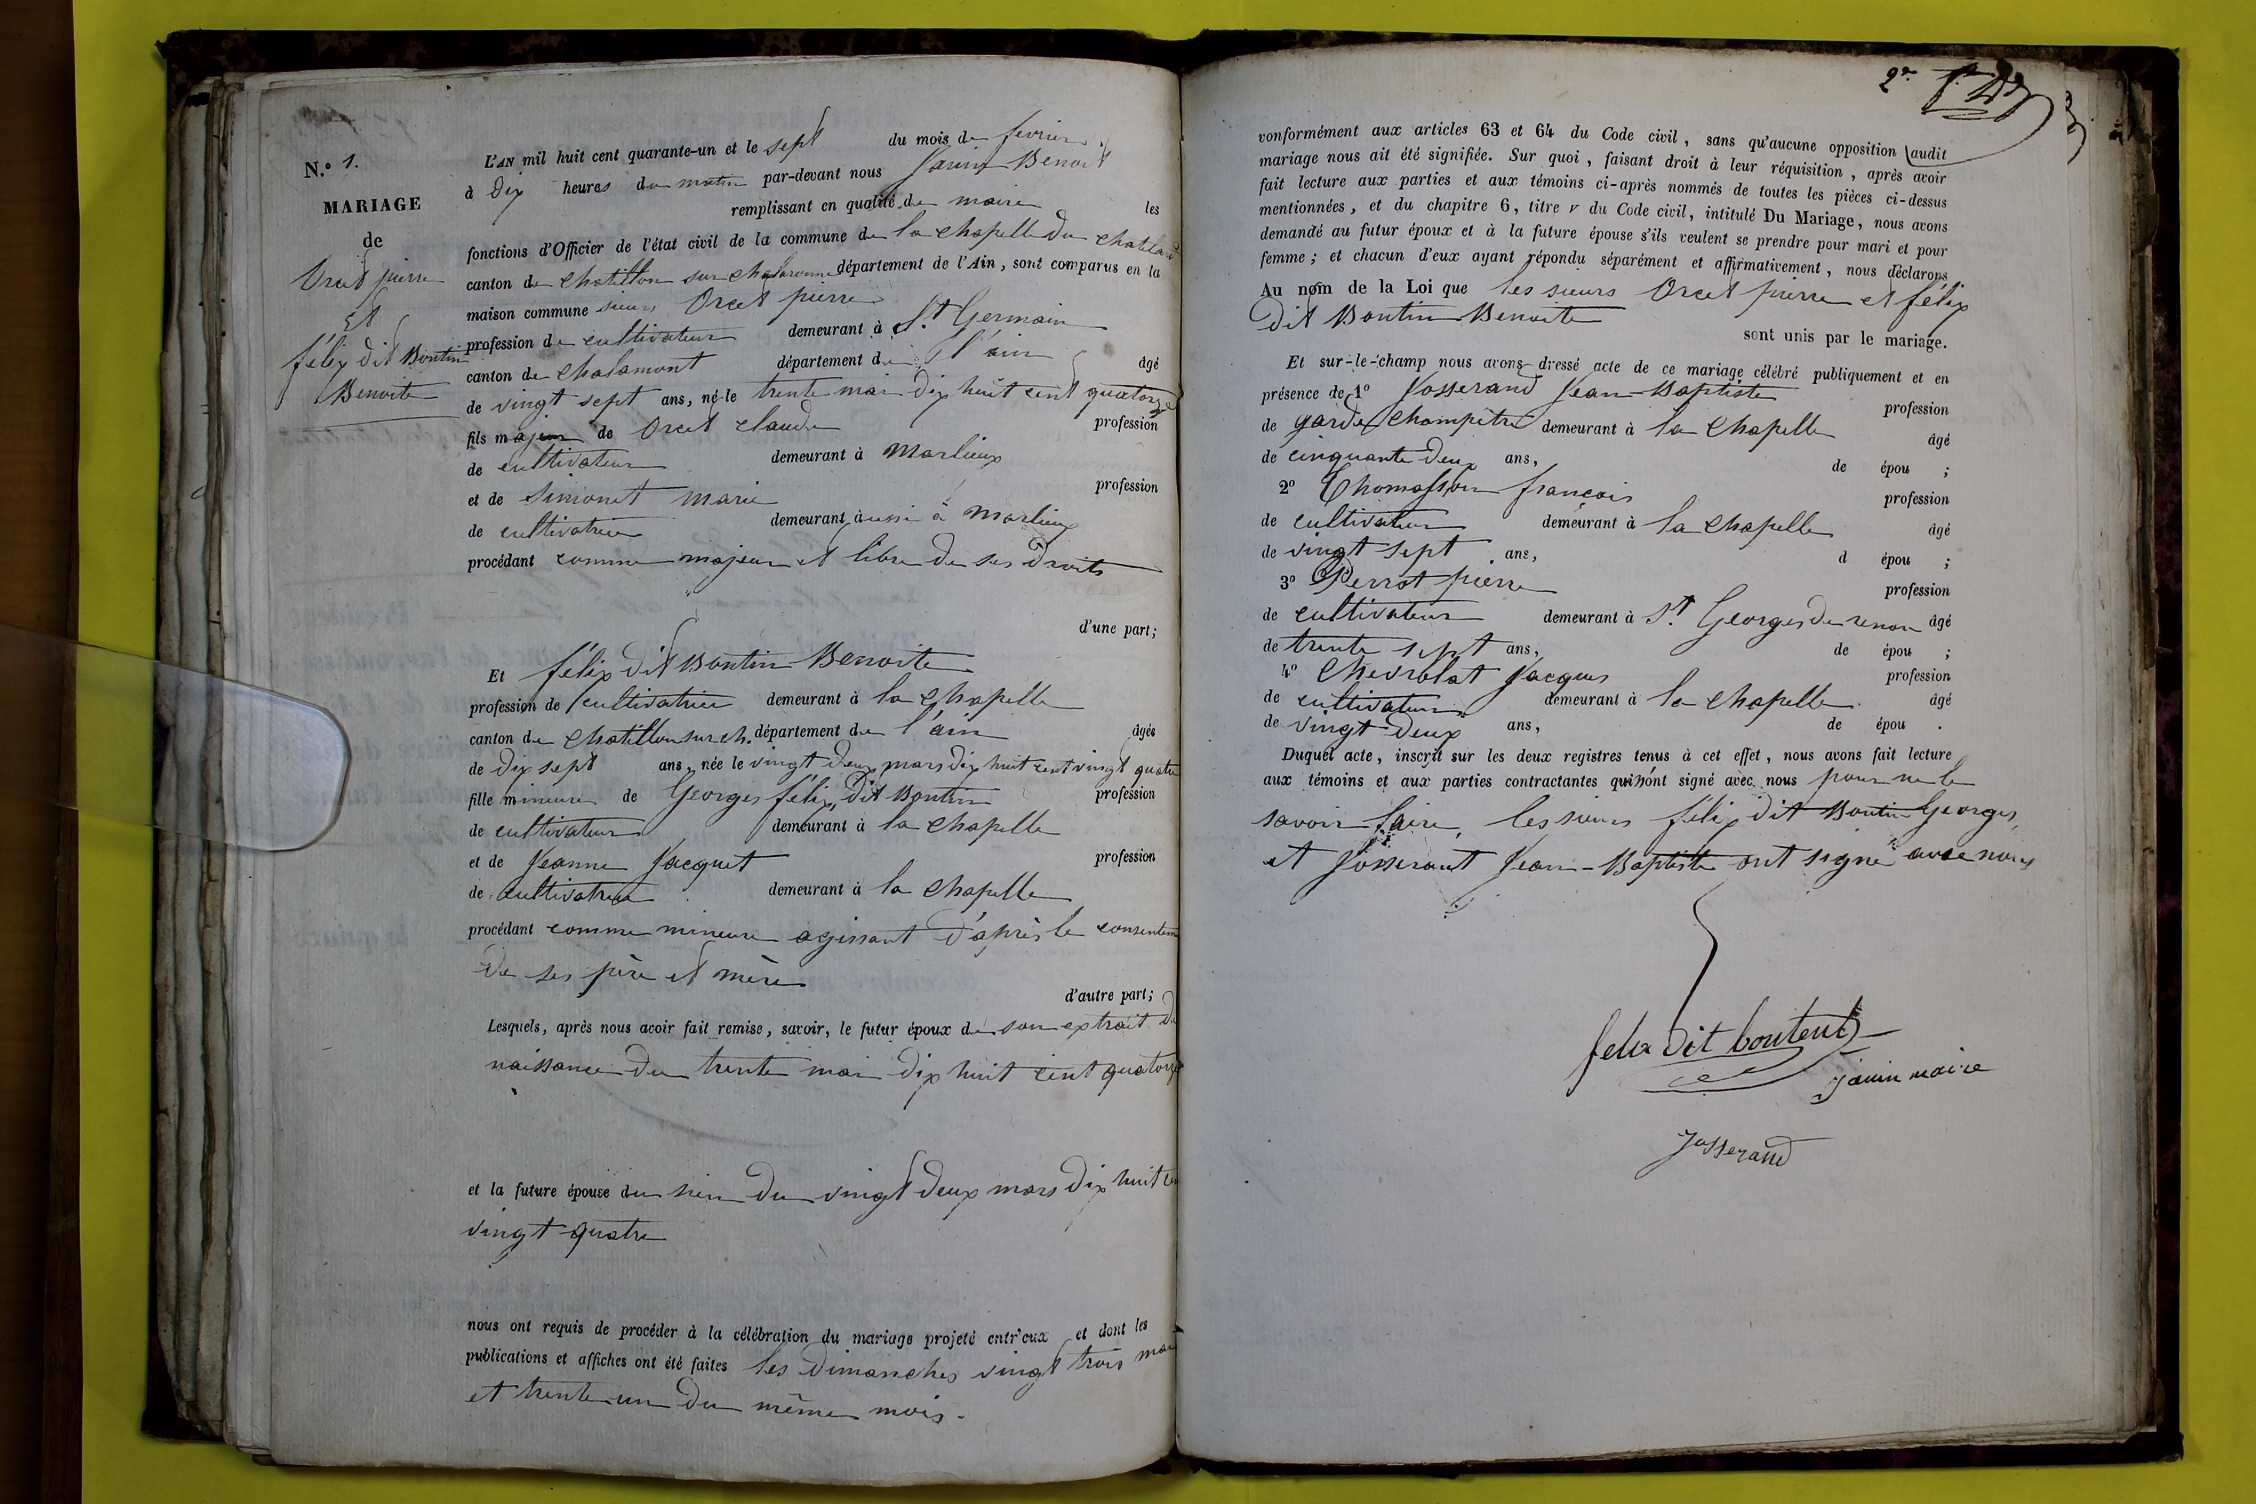 N.º 1.
MARIAGE
de
Orcet pierre
Et
félix dit Boutin
Benoite
L'AN mil huit cent quarante-un et le sept du mois de fevrier
à Dix heures du matin par-devant nous Janin Benoit
remplissant en qualité de maire les
fonctions d'Officier de l'état civil de la commune de la chapelle du chatelard
canton de chatillon sur chalaronne département de l'Ain, sont comparus en la
maison commune sieurs Orcet pierre
profession de cultivateur demeurant à St Germain
canton de chalamont département de l'ain âgé
de vingt sept ans, né le trente mai dix huit cent quatorze
fils majeur de Orcet claude profession
de cultivateur demeurant à Marlieux
et de Simonet marie profession
de cultivatrice demeurant aussi à Marlieux
procédant comme majeur et libre de ses Droits
d'une part;
Et félix dit Boutin Benoite
profession de cultivatrice demeurant à la chapelle
canton de chatillon sur ch. département de l'ain âgée
de dix sept ans, née le vingt deux mars dix huit cent vingt quatre
fille mineure de Georges félix dit Boutin profession
de cultivateur demeurant à la chapelle
et de Jeanne Jacquet profession
de cultivatrice demeurant à la chapelle
procédant comme mineure agissant d'après le consentem
De ses père et mère
d'autre part;
Lesquels, après nous avoir fait remise, savoir, le futur époux de son extrait de
naissance du trente mai dix huit cent quatorze
et la future épouse du sien du vingt deux mars dix huit cent
vingt quatre
nous ont requis de procéder à la célébration du mariage projeté entr'eux et dont les
publications et affiches ont été faites les dimanches vingt trois
et trente-un du même mois.
2e
conformément aux articles 63 et 64 du Code civil, sans qu'aucune opposition audit
mariage nous ait été signifiée. Sur quoi, faisant droit à leur réquisition, après avoir
fait lecture aux parties et aux témoins ci-après nommés de toutes les pièces ci-dessus
mentionnées, et du chapitre 6, titre v du Code civil, intitulé Du Mariage, nous avons
demandé au futur époux et à la future épouse s'ils veulent se prendre pour mari et pour
femme; et chacun d'eux ayant répondu séparément et affirmativement, nous déclarons
Au nom de la Loi que les sieurs Orcet pierre et félix
dit Boutin Benoite sont unis par le mariage.
Et sur-le-champ nous avons dressé acte de ce mariage célébré publiquement et en
présence de 1º Josserand Jean-Baptiste profession
de garde champêtre demeurant à la chapelle âgé
de cinquante deux ans, de épou ;
2º Thomasson françois profession
de cultivateur demeurant à la chapelle âgé
de vingt sept ans, d épou ;
3º Perrot pierre profession
de cultivateur demeurant à St Georges de renon âgé
de trente sept ans, de épou ;
4º Chevrolat Jacques profession
de cultivateur demeurant à la chapelle âgé
de vingt deux ans, de épou .
Duquel acte, inscrit sur les deux registres tenus à cet effet, nous avons fait lecture
aux témoins et aux parties contractantes qui n'ont signé avec nous pour ne le
savoir faire, les sieurs félix dit Boutin Georges,
et Josserant Jean-Baptiste ont signé avec nous
felix dit bouteut
Janin maire
Josserand